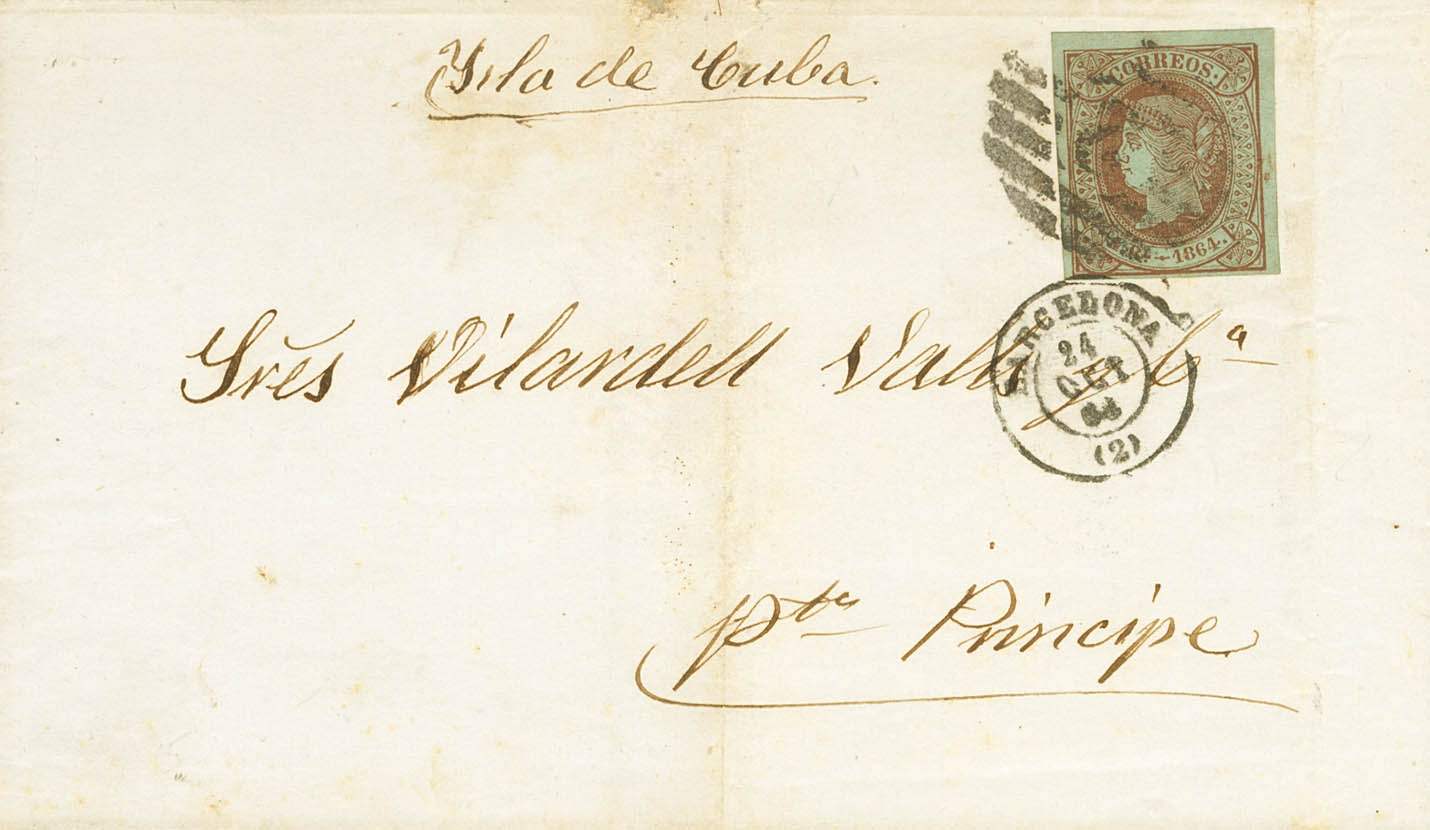 Ysla de Cuba.
CORREOS.
1864.
BARCELONA
24
OCT
64
(2)
Sres Vilardell Valls y Cª
pto Principe